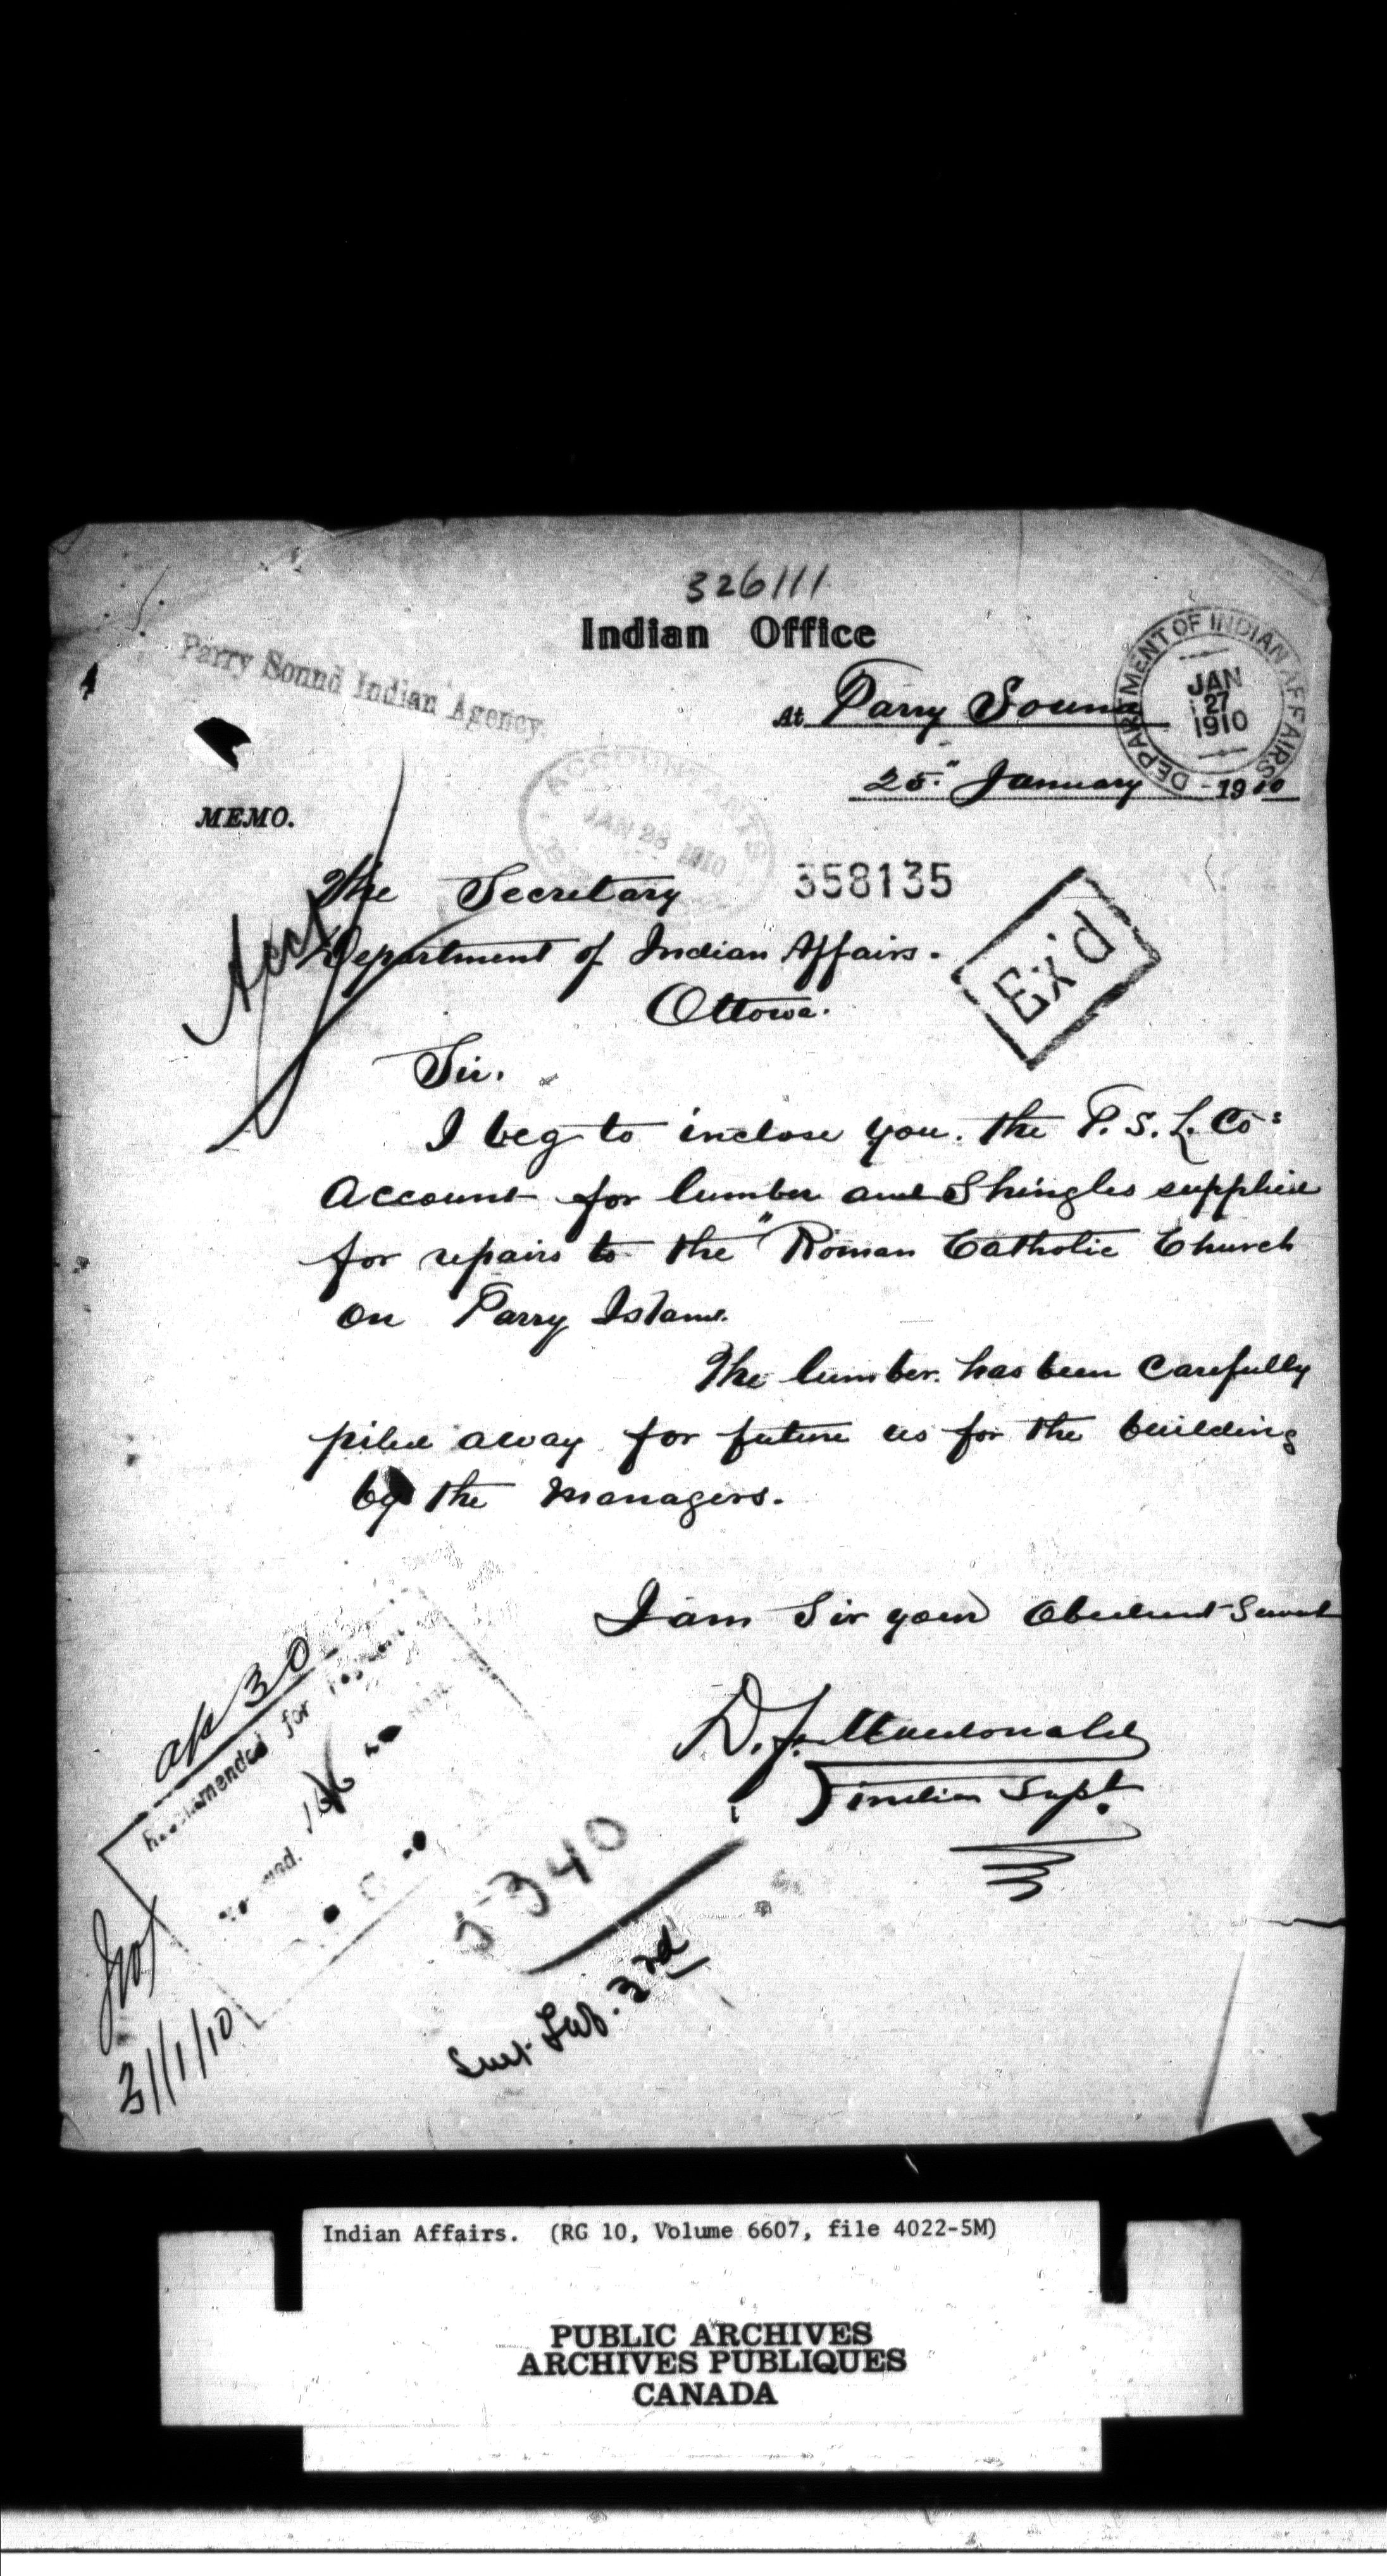 326111
Indian Office
Parry Sound Indian Agency.
At Parry Sound
DEPARTMENT OF INDIAN AFFAIRS
JAN
27
1910
25" January 1910
MEMO.
ACCOUNTANT'S
JAN 28 1910
The Secretary
358135
Acct
Department of Indian Affairs.
Ex'd
Ottowa.
Sir.
I beg to inclose you. the P. S. L. Co:s
Account for lumber and Shingles supplied
for repairs to the "Roman Catholic Church
on Parry Island.
The lumber. has been Carefully
piled away for future us for the building
by the Managers.
I am Sir your Obedient Servt
D. F. Macdonald
Indian Supt.
30
Recommended for
5340
Feb. 3rd
31/1/10
Indian Affairs. (RG 10, Volume 6607, file 4022-5M)
PUBLIC ARCHIVES
ARCHIVES PUBLIQUES
CANADA